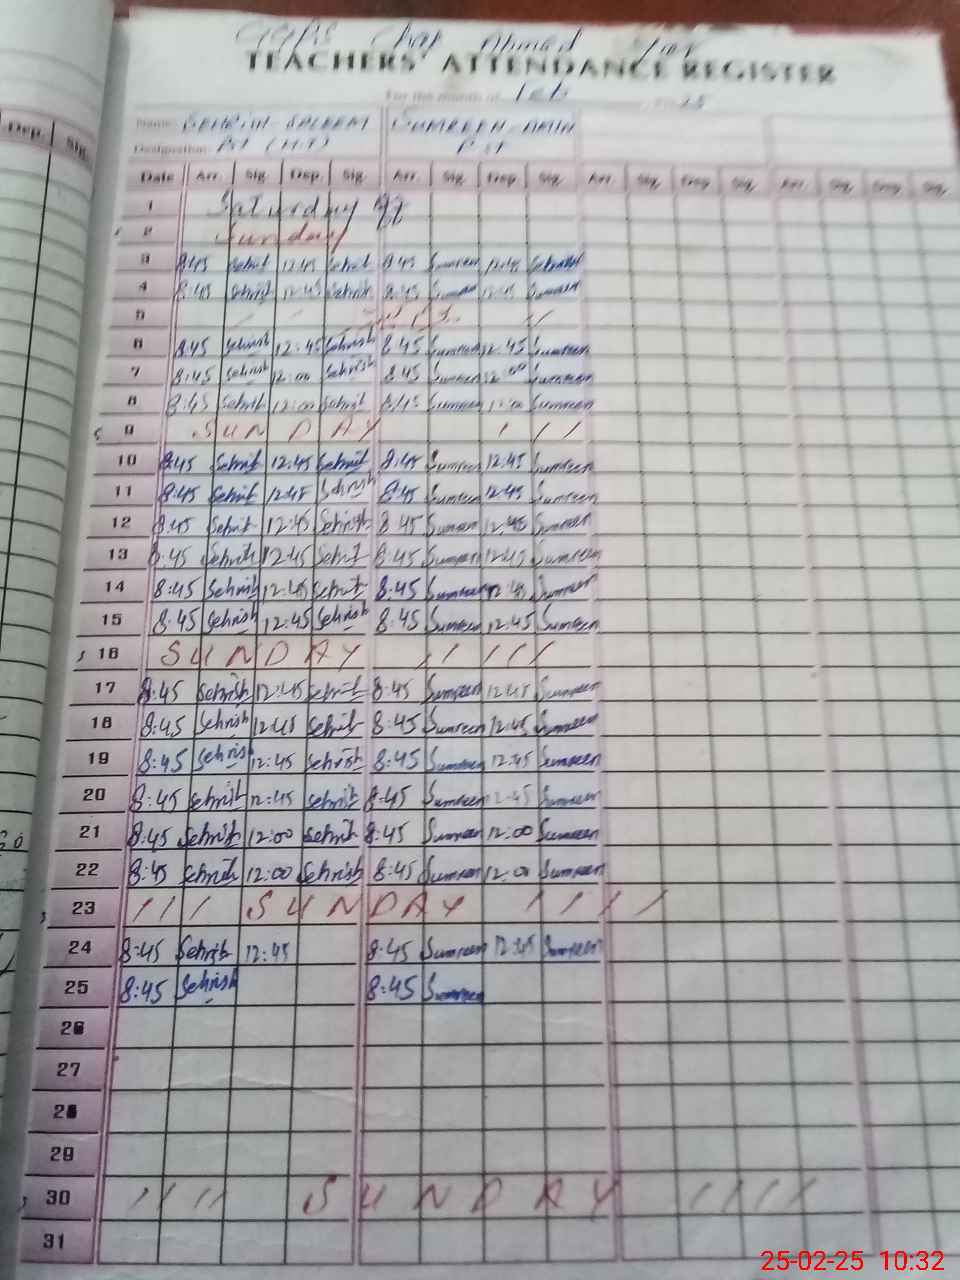 Dep. Sig.
GGPS Chak Ahmed Yar
TEACHERS' ATTENDANCE REGISTER
For the month of Feb 25
Name: SEHRISH SALEEM SUMREEN AMIN
Designation: PST (H.T) PST
Date Arr. Sig. Dep. Sig. Arr. Sig. Dep. Sig. Arr. Sig. Dep. Sig. Arr. Sig. Dep. Sig.
1 Saturday
2 Sunday
3 8:45 Sehrish 12:45 Sehrish 8:45 Sumreen 12:45
4 8:45 Sehrish 12:45 Sehrish 8:45 Sumreen 12:45 Sumreen
5
6 8:45 Sehrish 12:45 Sehrish 8:45 Sumreen 12:45 Sumreen
7 8:45 Sehrish 12:00 Sehrish 8:45 Sumreen 12:00 Sumreen
8 8:45 Sehrish 12:00 Sehrish 8:45 Sumreen 12:00 Sumreen
9 SUNDAY / / /
10 8:45 Sehrish 12:45 Sehrish 8:45 Sumreen 12:45 Sumreen
11 8:45 Sehrish 12:45 Sehrish 8:45 Sumreen 12:45 Sumreen
12 8:45 Sehrish 12:45 Sehrish 8:45 Sumreen 12:45 Sumreen
13 8:45 Sehrish 12:45 Sehrish 8:45 Sumreen 12:45 Sumreen
14 8:45 Sehrish 12:45 Sehrish 8:45 Sumreen 12:45 Sumreen
15 8:45 Sehrish 12:45 Sehrish 8:45 Sumreen 12:45 Sumreen
16 SUNDAY / / / / /
17 8:45 Sehrish 12:45 Sehrish 8:45 Sumreen 12:45 Sumreen
18 8:45 Sehrish 12:45 Sehrish 8:45 Sumreen 12:45 Sumreen
19 8:45 Sehrish 12:45 Sehrish 8:45 Sumreen 12:45 Sumreen
20 8:45 Sehrish 12:45 Sehrish 8:45 Sumreen 12:45 Sumreen
21 8:45 Sehrish 12:00 Sehrish 8:45 Sumreen 12:00 Sumreen
22 8:45 Sehrish 12:00 Sehrish 8:45 Sumreen 12:00 Sumreen
23 / / / SUNDAY / / / /
24 8:45 Sehrish 12:45 8:45 Sumreen 12:45 Sumreen
25 8:45 Sehrish 8:45 Sumreen
26
27
28
29
30 / / / / SUNDAY / / / /
31
25-02-25 10:32